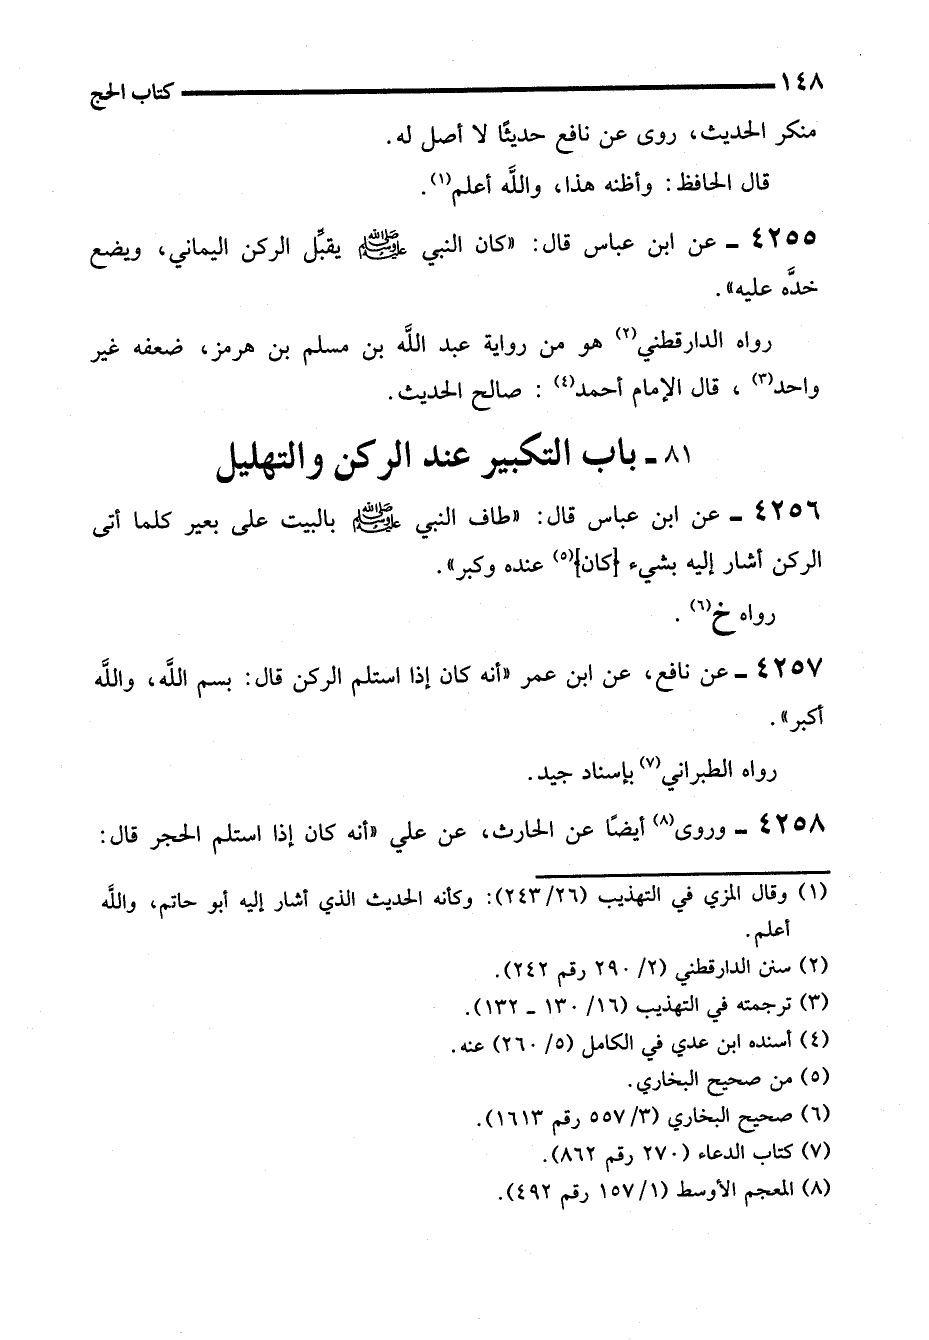 ١٤٨ كتاب الحج
منكر الحديث، روى عن نافع حديثًا لا أصل له.
قال الحافظ: وأظنه هذا، واللَّه أعلم(١).
٤٢٥٥ ـ عن ابن عباس قال: «كان النبي ﷺ يقبِّل الركن اليماني، ويضع
خدَّه عليه».
رواه الدارقطني(٢) هو من رواية عبد اللَّه بن مسلم بن هرمز، ضعفه غير
واحد(٣) ، قال الإمام أحمد(٤) : صالح الحديث.
٨١ ـ باب التكبير عند الركن والتهليل
٤٢٥٦ ـ عن ابن عباس قال: «طاف النبي ﷺ بالبيت على بعير كلما أتى
الركن أشار إليه بشيء [كان](٥) عنده وكبر».
رواه خ(٦) .
٤٢٥٧ ـ عن نافع، عن ابن عمر «أنه كان إذا استلم الركن قال: بسم اللَّه، واللَّه
أكبر».
رواه الطبراني(٧) بإسناد جيد.
٤٢٥٨ ـ وروى(٨) أيضًا عن الحارث، عن علي «أنه كان إذا استلم الحجر قال:
(١) وقال المزي في التهذيب (٢٦/ ٢٤٣): وكأنه الحديث الذي أشار إليه أبو حاتم، واللَّه
أعلم.
(٢) سنن الدارقطني (٢/ ٢٩٠ رقم ٢٤٢).
(٣) ترجمته في التهذيب (١٦/ ١٣٠ ـ ١٣٢).
(٤) أسنده ابن عدي في الكامل (٥/ ٢٦٠) عنه.
(٥) من صحيح البخاري.
(٦) صحيح البخاري (٣/ ٥٥٧ رقم ١٦١٣).
(٧) كتاب الدعاء (٢٧٠ رقم ٨٦٢).
(٨) المعجم الأوسط (١/ ١٥٧ رقم ٤٩٢).